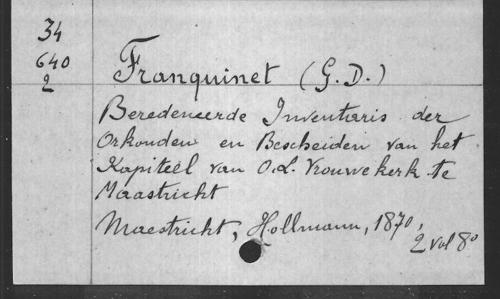 34
640
2
Franquinet (G. D.)
Beredeneerde Inventaris der
Orkonden en Bescheiden van het
Kapiteel van O. L. Vrouwekerk te
Maastricht
Maestricht, Hollmann, 1870,
2 vol 8°